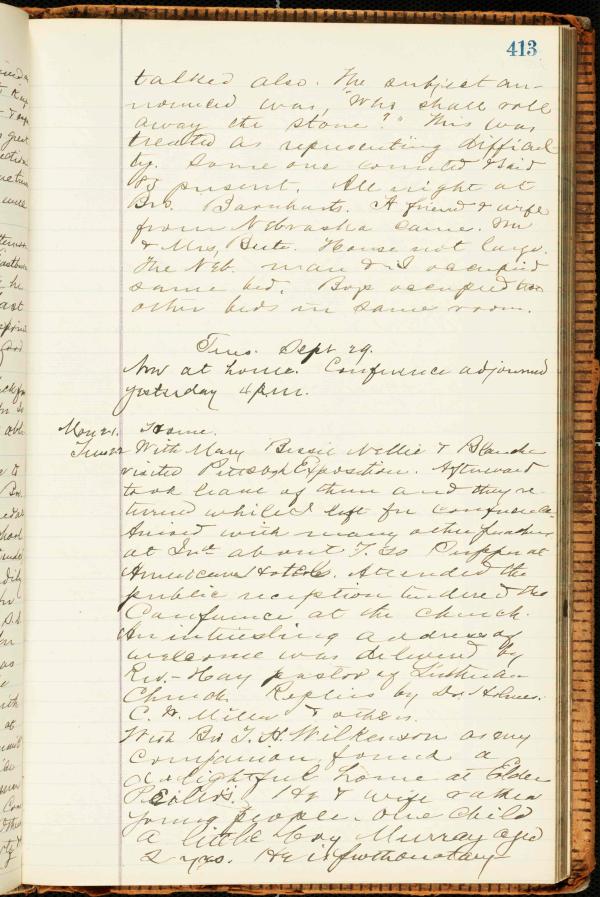 413
talked also. The subject an-
nounced was, "Who shall roll
away the stone?" This was
treated as representing difficul
ty. Some one counted & said
85 present. All night at
Bro. Barnharts. A friend & wife
from Nebraska came. Mr
& Mrs, House not large.
The Neb. man & I occupied
same bed. Boys occupied two
other beds in same room.
Tues. Sept 29.
Now at home. Conference adjourned
yesterday 4 p.m.
Mon 21. Home.
Tues 22 With Mary Bessie Nellie & Blanche
visited Pittsbgh Exposition. Afterward
took leave of them and they re-
turned while I left for conference.
Arived with many other preachers
at about 7. Supper at
American Hotel. Attended the
public reception tendered the
Conference at the church.
An interesting address of
welcome was delivered by
Rev. - Hay pastor of Lutheran
Church. Replies by Dr.
C. W. Miller & others.
With Bro T. H. Wilkinson as my
companion found a
delightful home at Elder
He & wife rather
young people. One child
a little boy Murray aged
2 yrs. He is prothonotary